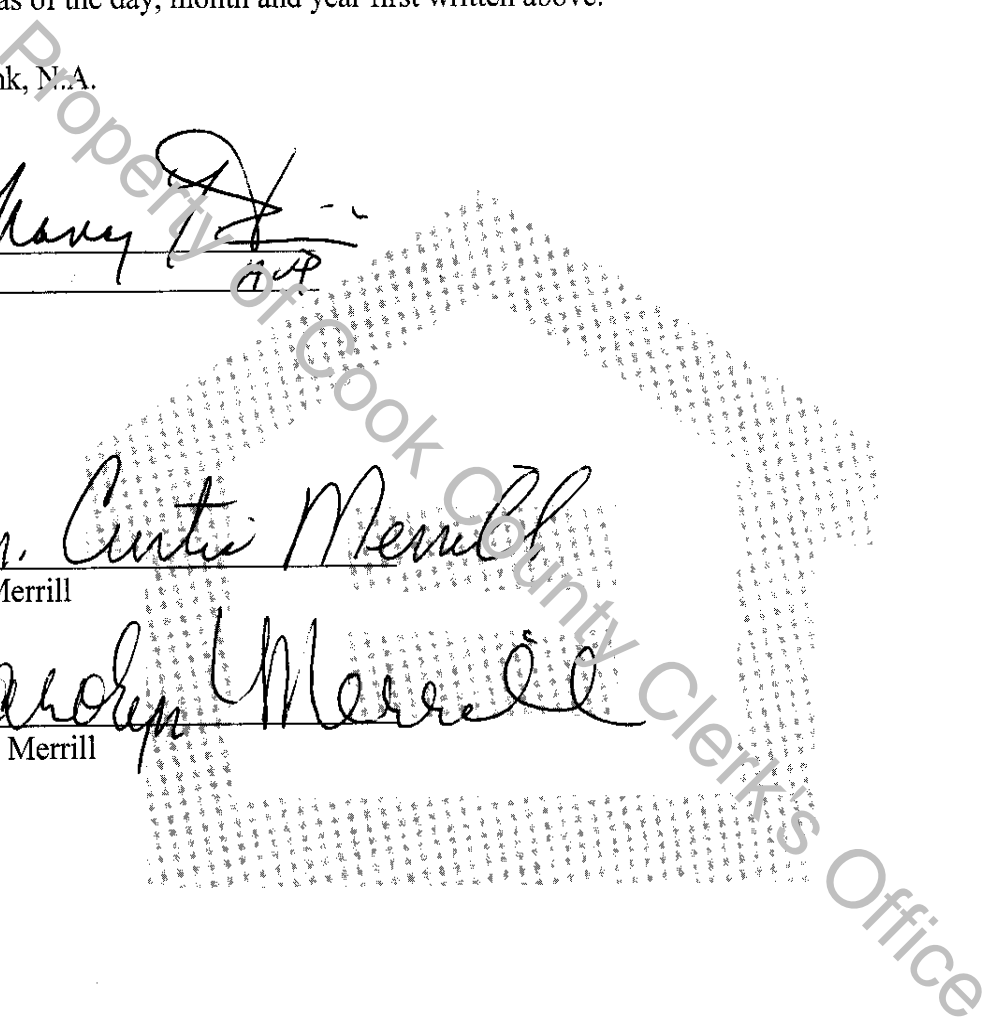 as of the day, month and year first written above.
nk, N.A.
AVP
n. Curtis Merrill
Merrill
arolyn Merrill
Merrill
Property of Cook County Clerk's Office